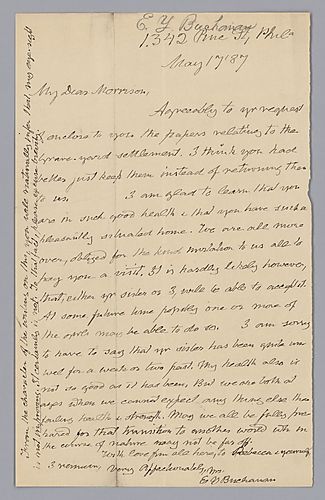 E. Y. Buchanan
1.342 Pine St, Phila
May 17 '87
My Dear Morrison,
Agreeably to yr request
I enclose to you the papers relating to the
Grave-yard settlement. I think you had
better just keep them instead of returning them
to us. I am glad to learn that you
are in such good health & that you have such a
pleasantly situated home. We are all more
over, obliged for the kind invitation to us all to
pay you a visit. It is hardly likely however,
that, either yr sister or I, will be able to accept it.
At some future time possibly one or more of
the girls may be able to do so. I am sorry
to have to say that yr sister has been quite un
well for a week or two past. My health also is
not so good as it has been, But we are both at
ages when we cannot expect any thing else than
failing health & strength. May we all be fully pre
pared for that transition to another world wh in
the course of nature may not be far off.
With love from all here, to Rebecca & yourself,
I remain very Affectionately, Yrs.
E Y Buchanan
From the character of the writing in this, you will naturally infer that, my eye-sight
is not improving. It certainly is not. To that fact please excuse brevity.